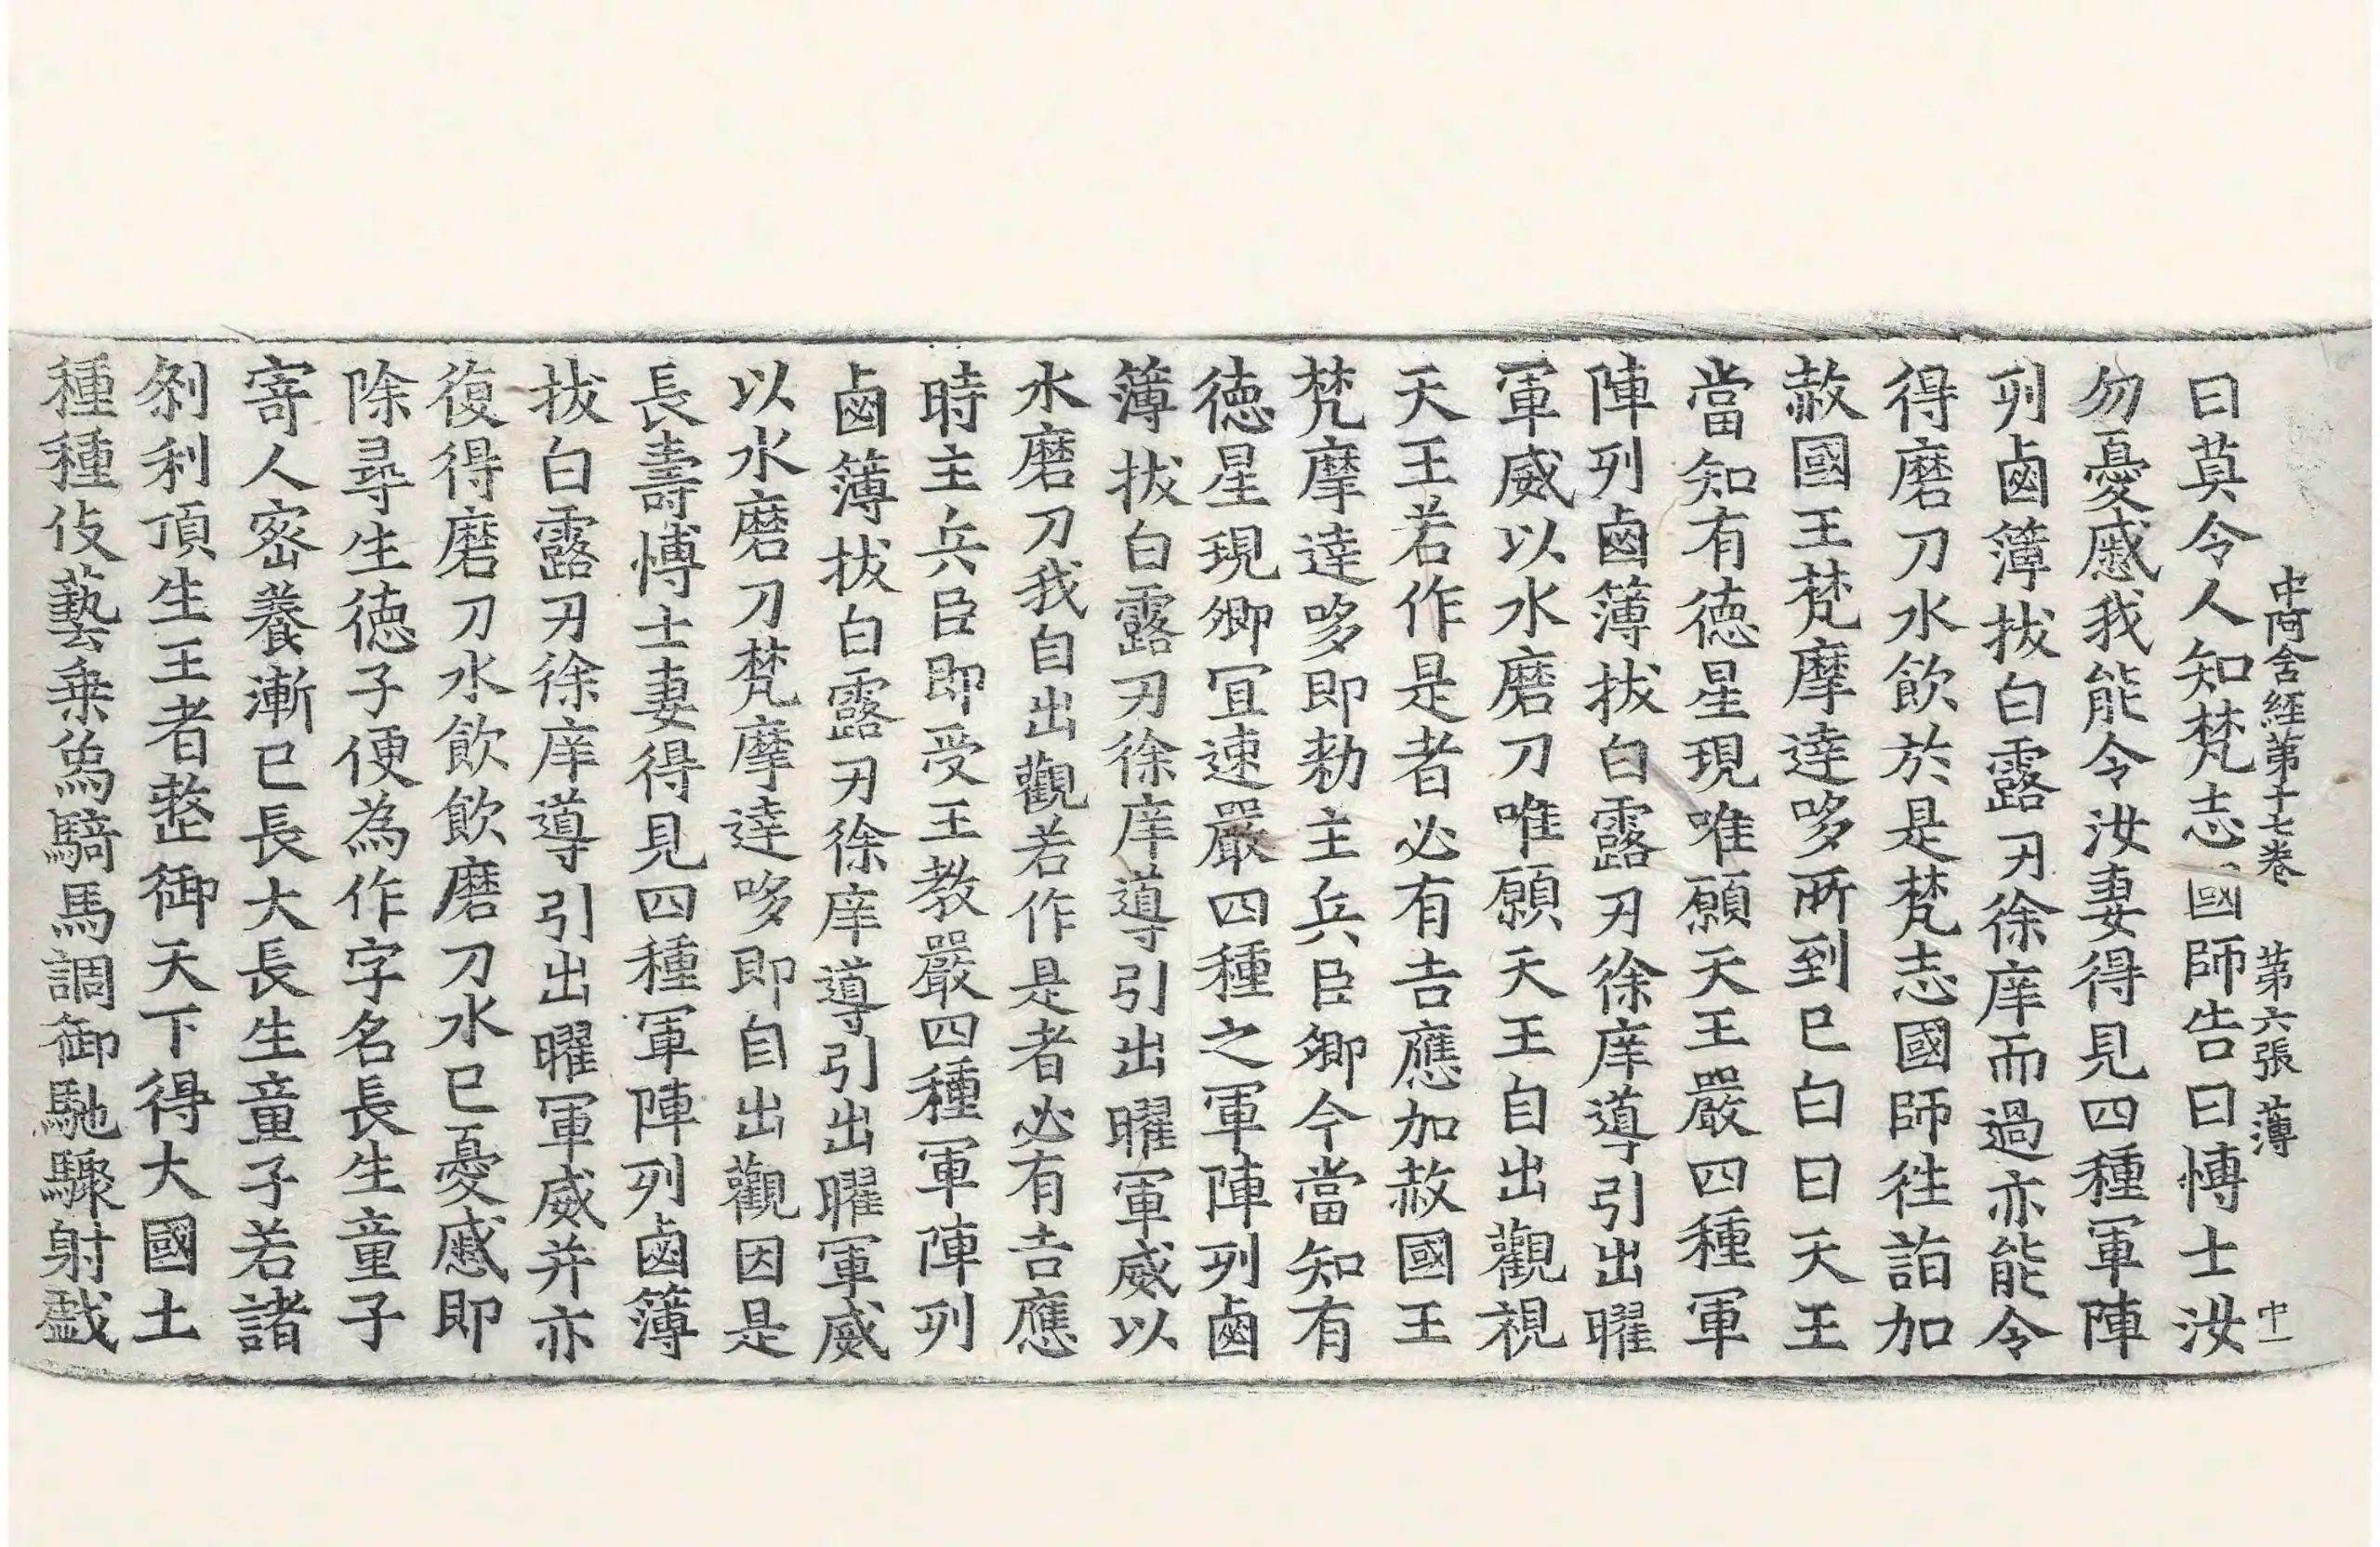 中阿含経第十七卷 第六張 薄 中一
曰莫令人知梵志國師告曰愽士汝
勿憂慼我能令汝妻得見四種軍陣
列鹵簿拔白露刃徐庠而過亦能令
得磨刀水飲於是梵志國師往詣加
赦國王梵摩達哆所到已白曰天王
當知有德星現唯願天王嚴四種軍
陣列鹵簿拔白露刃徐庠導引出曜
軍威以水磨刀唯願天王自出觀視
天王若作是者必有吉應加赦國王
梵摩達哆即勑主兵臣卿今當知有
德星現卿冝速嚴四種之軍陣列鹵
簿拔白露刃徐庠導引出曜軍威以
水磨刀我自出觀若作是者必有吉應
時主兵臣即受王教嚴四種軍陣列
鹵簿拔白露刃徐庠導引出曜軍威
以水磨刀梵摩達哆即自出觀因是
長壽愽士妻得見四種軍陣列鹵簿
拔白露刃徐庠導引出曜軍威并亦
復得磨刀水飲飲磨刀水已憂慼即
除尋生德子便為作字名長生童子
寄人密養漸已長大長生童子若諸
剎利頂生王者整御天下得大國土
種種伎藝乗象騎馬調御馳驟射戲